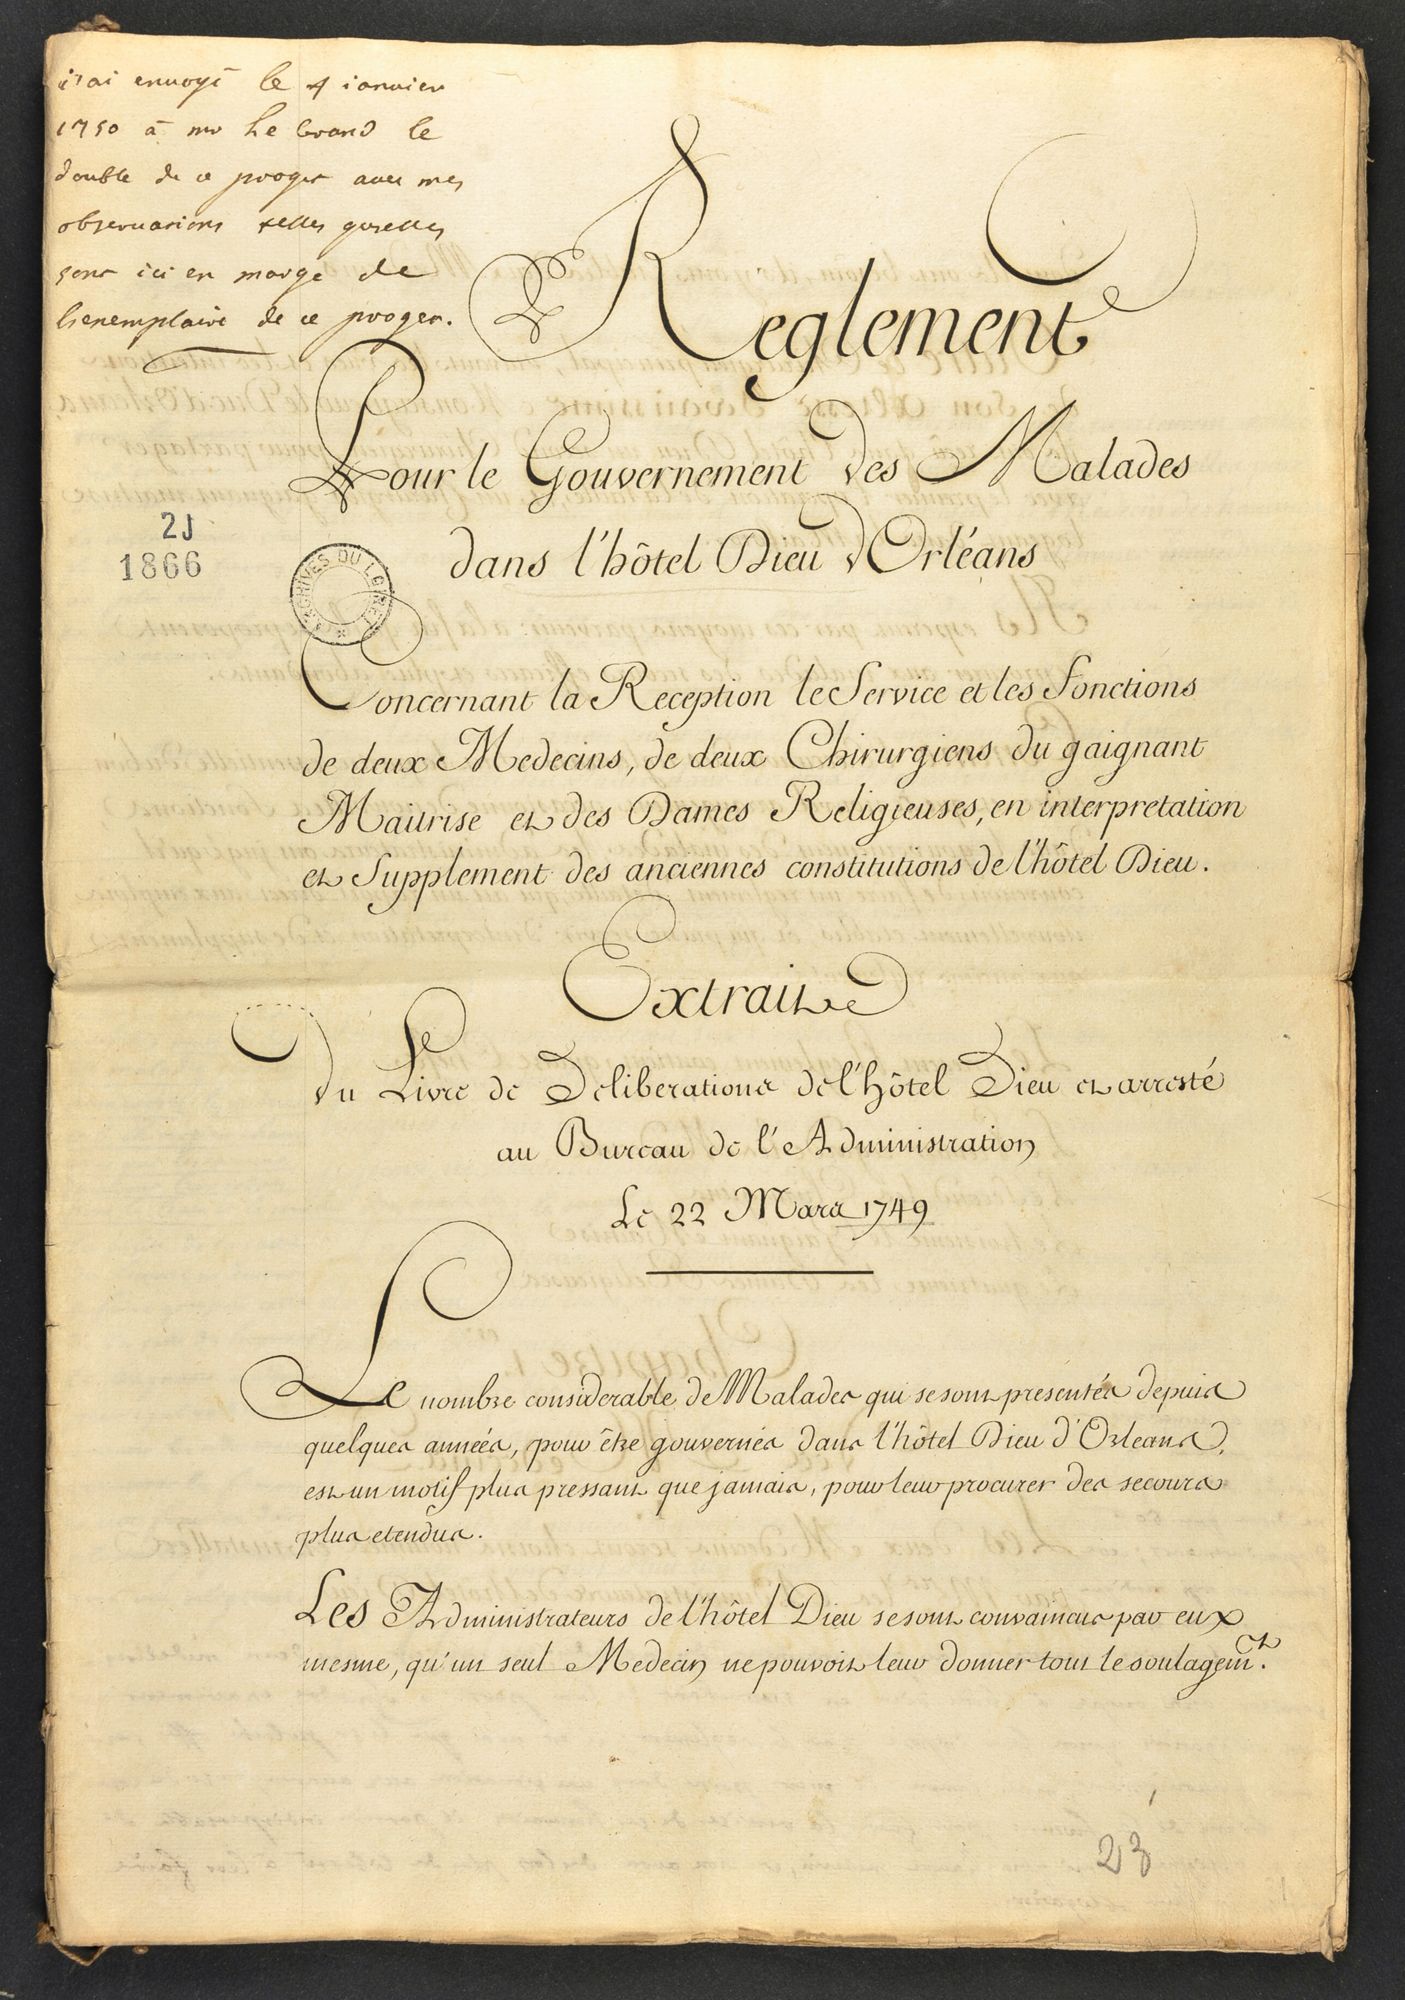 j'ai envoyé le 4 ianvier
1750 a mr Le Grand le
double de ce proget avec mes
observations telles qu'elles
sont ici en marge de
l'exemplaire de ce proget.
Reglement
Pour le Gouvernement des Malades
dans l'hôtel Dieu d'Orléans
2J
1866
ARCHIVES DU LOIRET
Concernant la Reception le Service et les Fonctions
de deux Medecins, de deux Chirurgiens du gaignant
Maitrise et des Dames Religieuses, en interpretation
et Supplement des anciennes constitutions de l'hôtel Dieu.
Extrait
Du Livre de Deliberations de l'hôtel Dieu et arresté
au Bureau de l'Administration
Le 22 Mars 1749
Le nombre considerable de Malades qui se sont presentés depuis
quelques années, pour être gouvernés dans l'hôtel Dieu d'Orleans,
est un motif plus pressant que jamais, pour leur procurer des secours
plus etendus.
Les Administrateurs de l'hôtel Dieu se sont convaincus par eux
mesme, qu'un seul Medecin ne pouvoit leur donner tout le soulagemt.
23